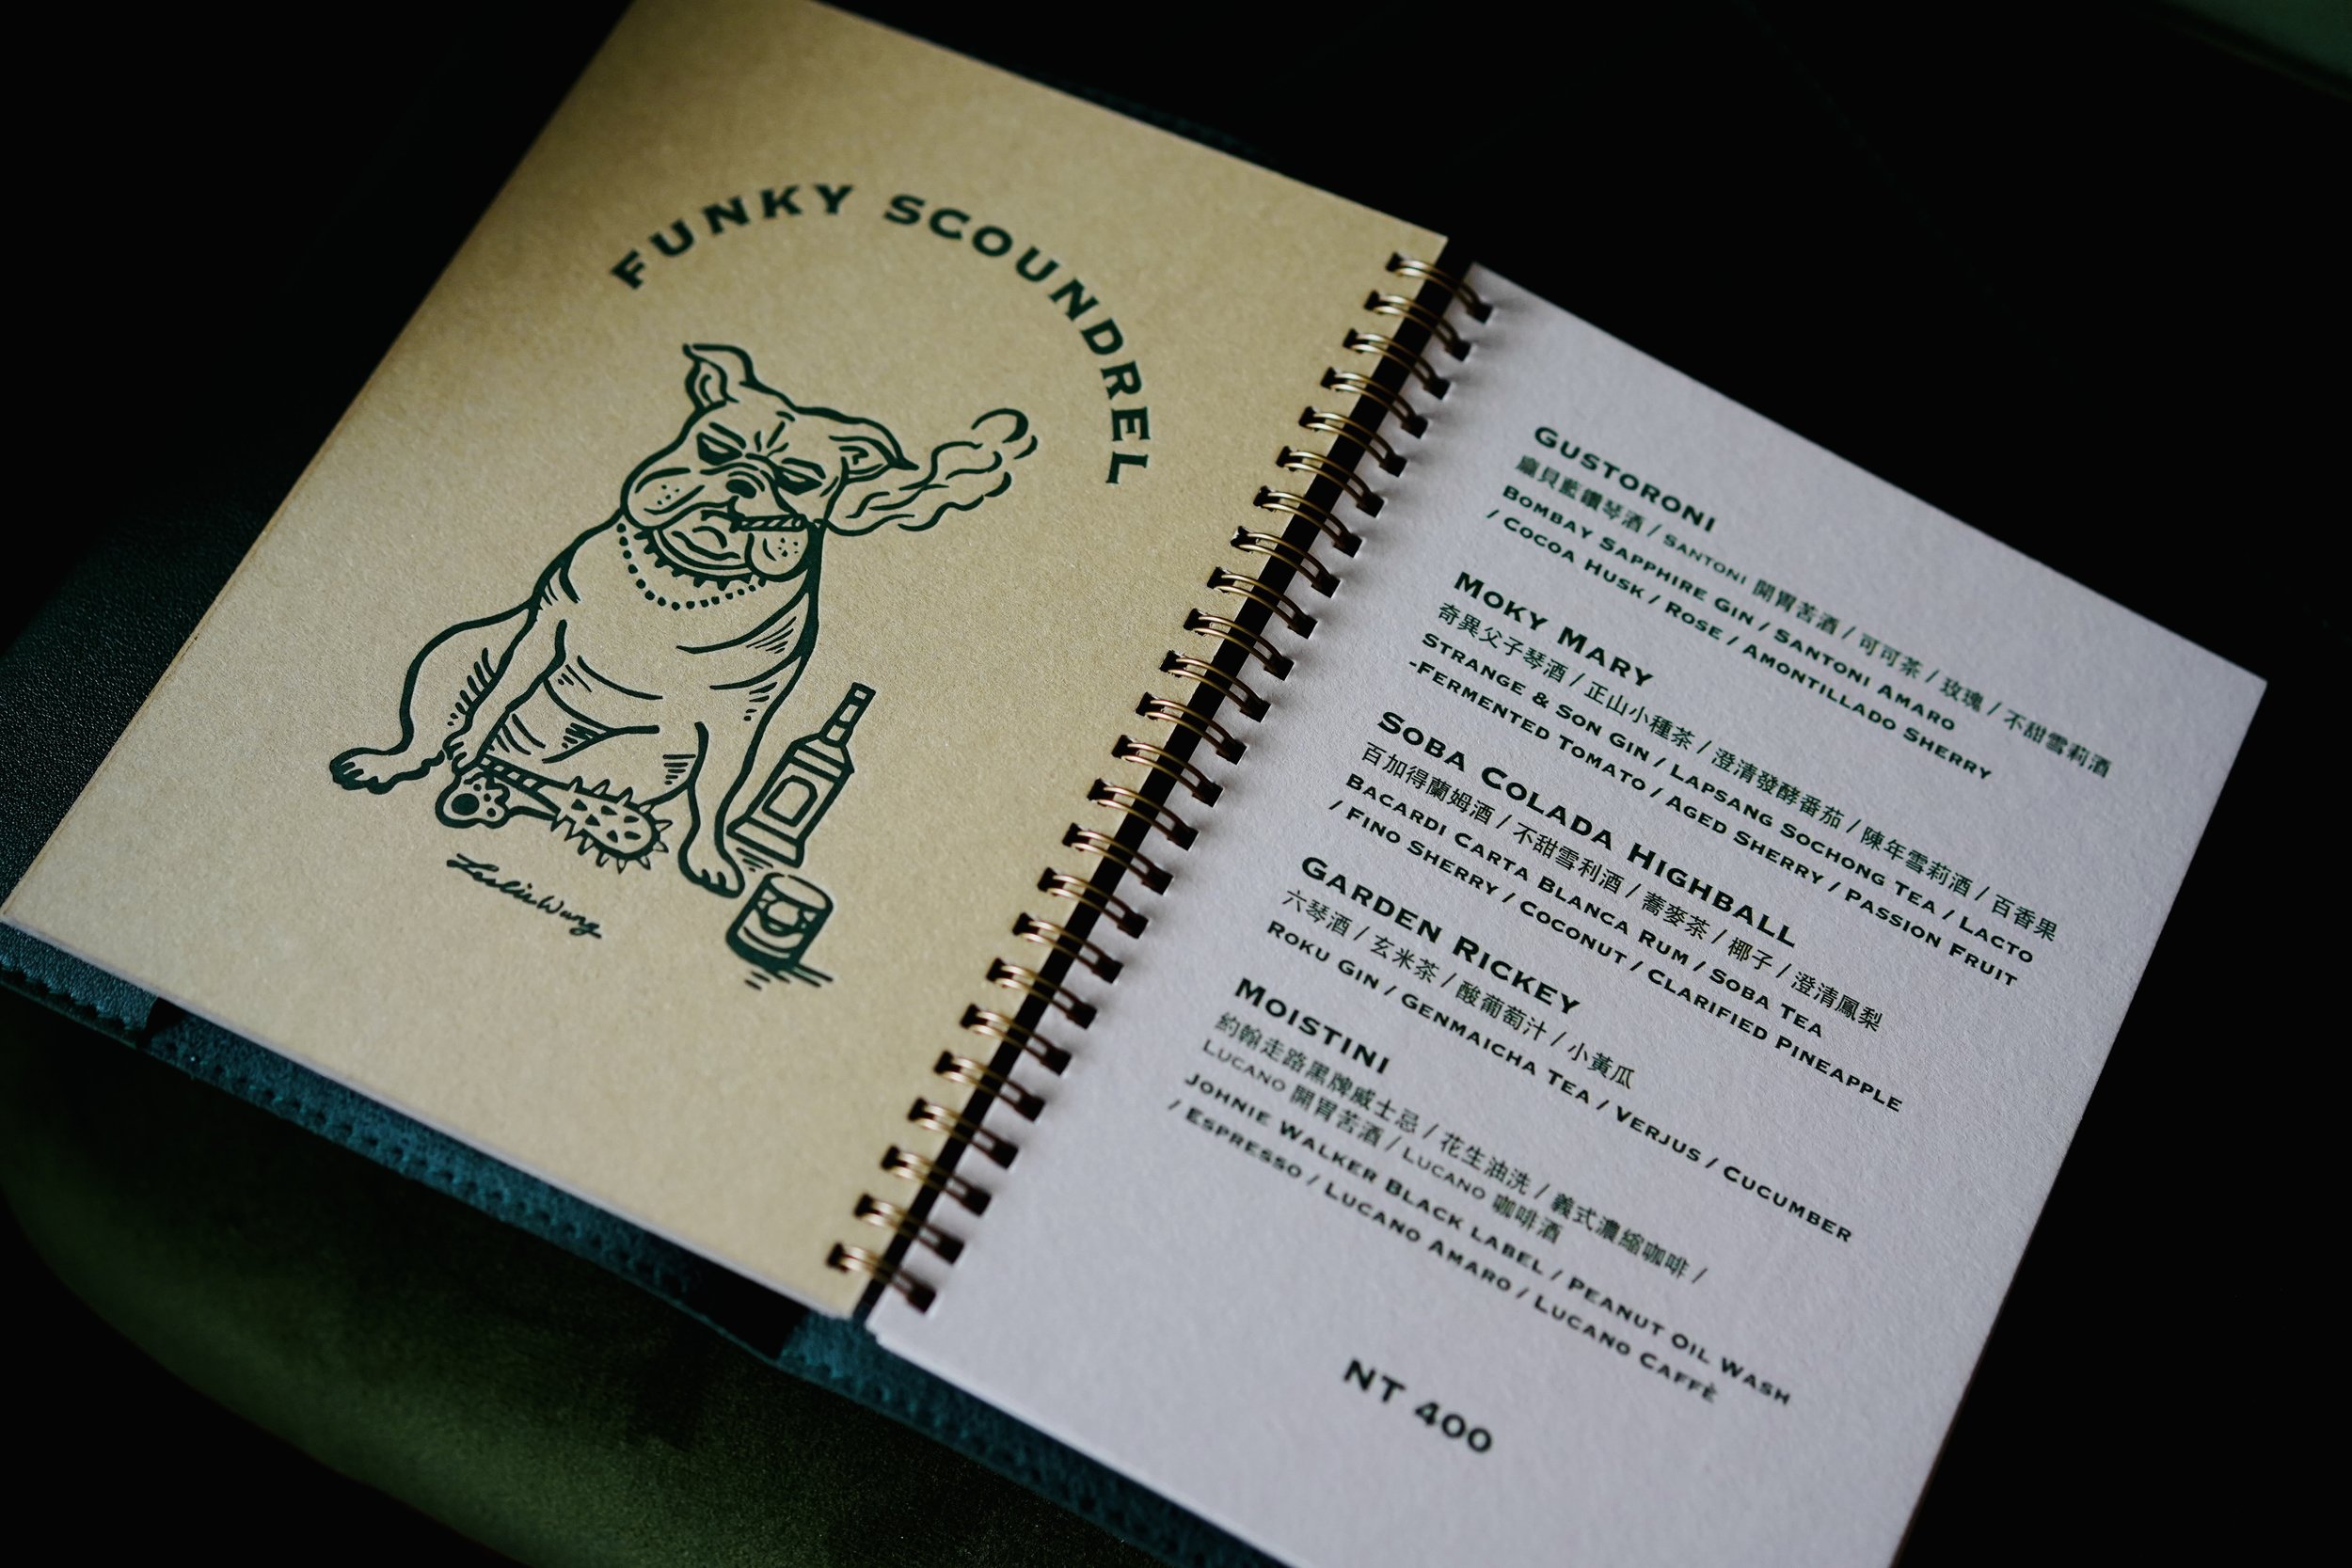 FUNKY SCOUNDREL
Leslie Wang
GUSTORONI
龐貝藍鑽琴酒 / SANTONI 開胃苦酒 / 可可茶 / 玫瑰 / 不甜雪莉酒
BOMBAY SAPPHIRE GIN / SANTONI AMARO
/ COCOA HUSK / ROSE / AMONTILLADO SHERRY
MOKY MARY
奇異父子琴酒 / 正山小種茶 / 澄清發酵番茄 / 陳年雪莉酒 / 百香果
STRANGE & SON GIN / LAPSANG SOCHONG TEA / LACTO
-FERMENTED TOMATO / AGED SHERRY / PASSION FRUIT
SOBA COLADA HIGHBALL
百加得蘭姆酒 / 不甜雪利酒 / 蕎麥茶 / 椰子 / 澄清鳳梨
BACARDI CARTA BLANCA RUM / SOBA TEA
/ FINO SHERRY / COCONUT / CLARIFIED PINEAPPLE
GARDEN RICKEY
六琴酒 / 玄米茶 / 酸葡萄汁 / 小黃瓜
ROKU GIN / GENMAICHA TEA / VERJUS / CUCUMBER
MOISTINI
約翰走路黑牌威士忌 / 花生油洗 / 義式濃縮咖啡 /
LUCANO 開胃苦酒 / LUCANO 咖啡酒
JOHNIE WALKER BLACK LABEL / PEANUT OIL WASH
/ ESPRESSO / LUCANO AMARO / LUCANO CAFFÈ
NT 400